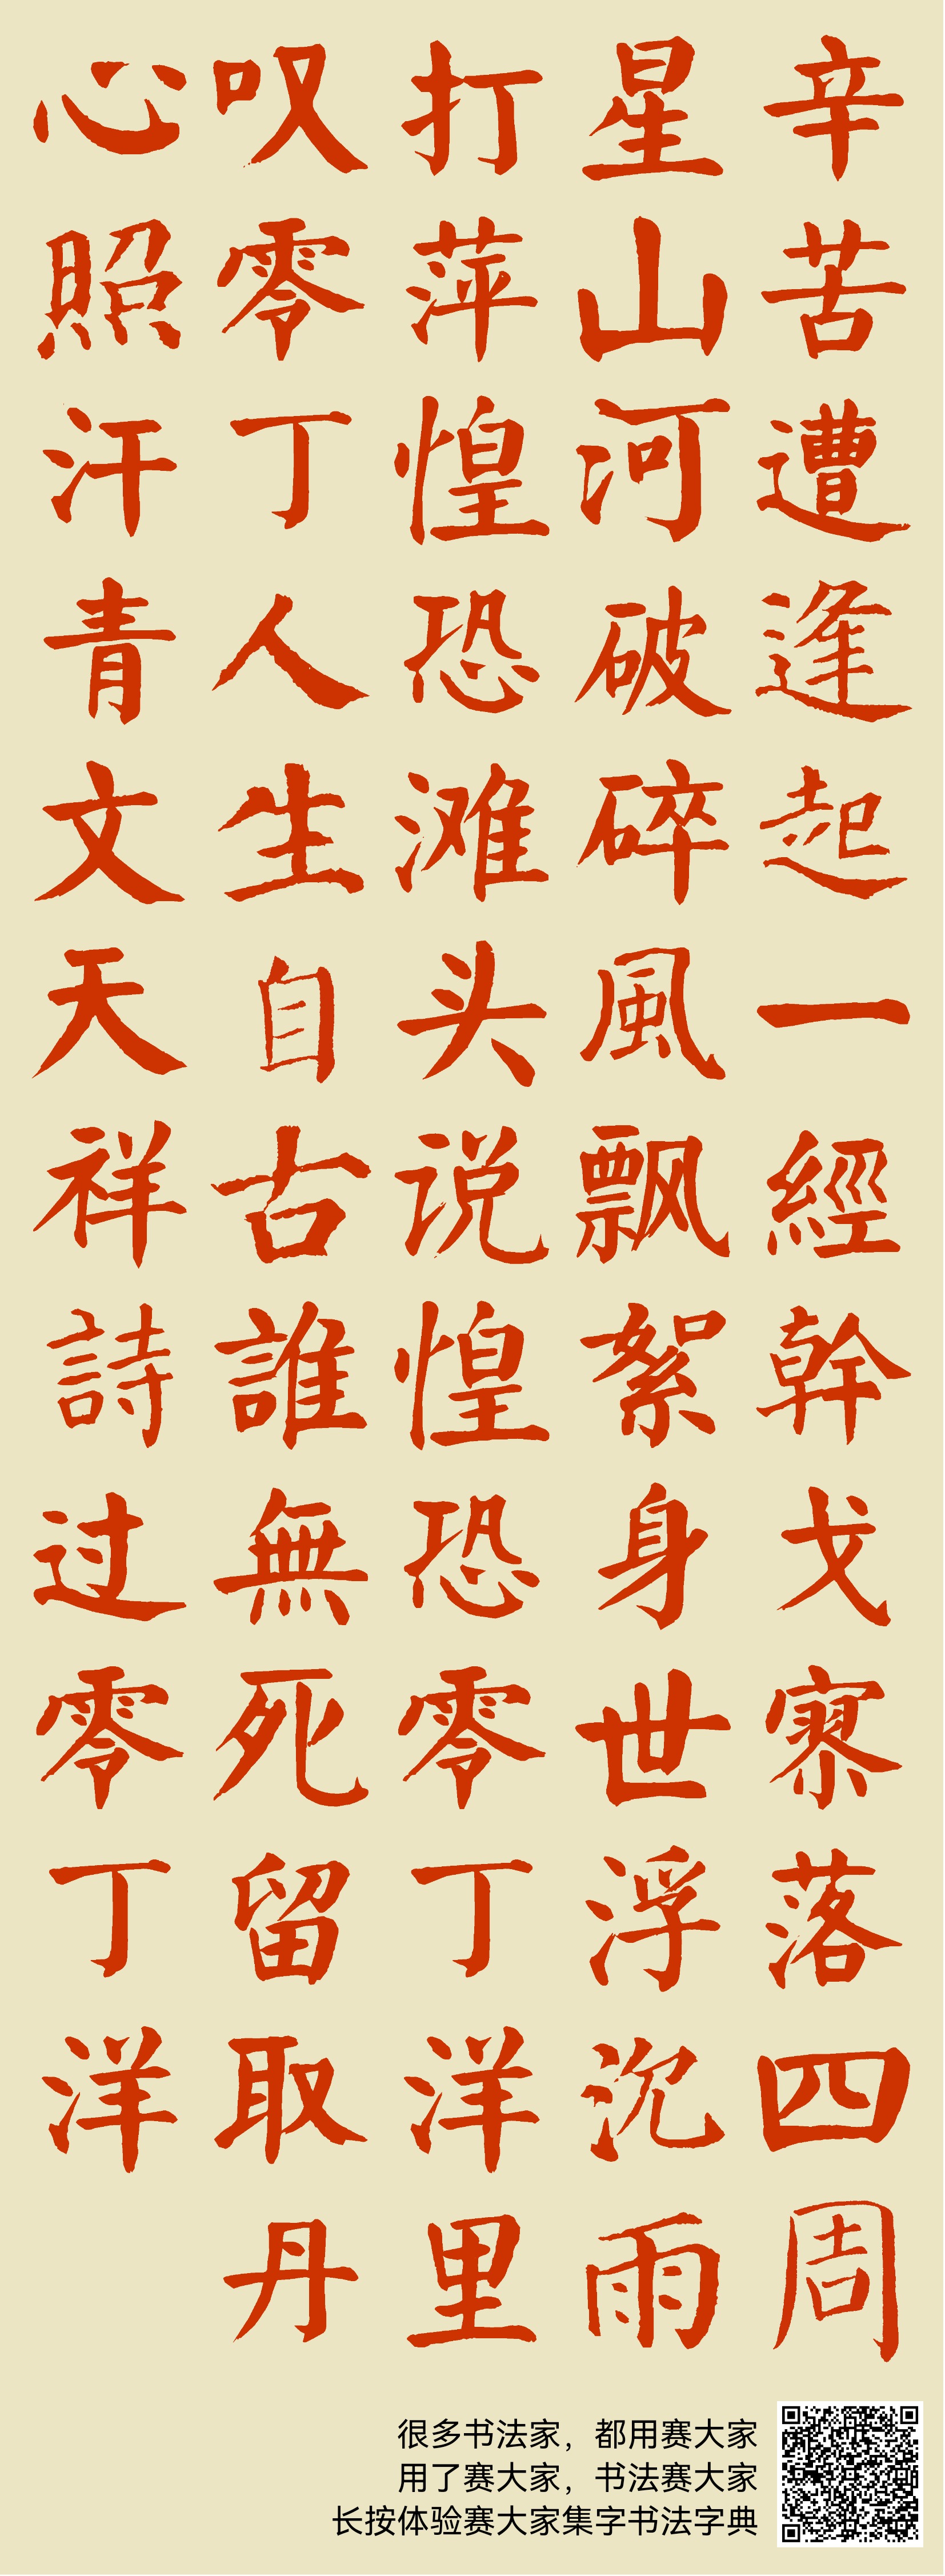 辛苦遭逢起一經幹戈寥落四周
星山河破碎風飘絮身世浮沉雨
打萍惶恐滩头说惶恐零丁洋里
叹零丁人生自古誰無死留取丹
心照汗青文天祥詩过零丁洋
很多书法家，都用赛大家
用了赛大家，书法赛大家
长按体验赛大家集字书法字典